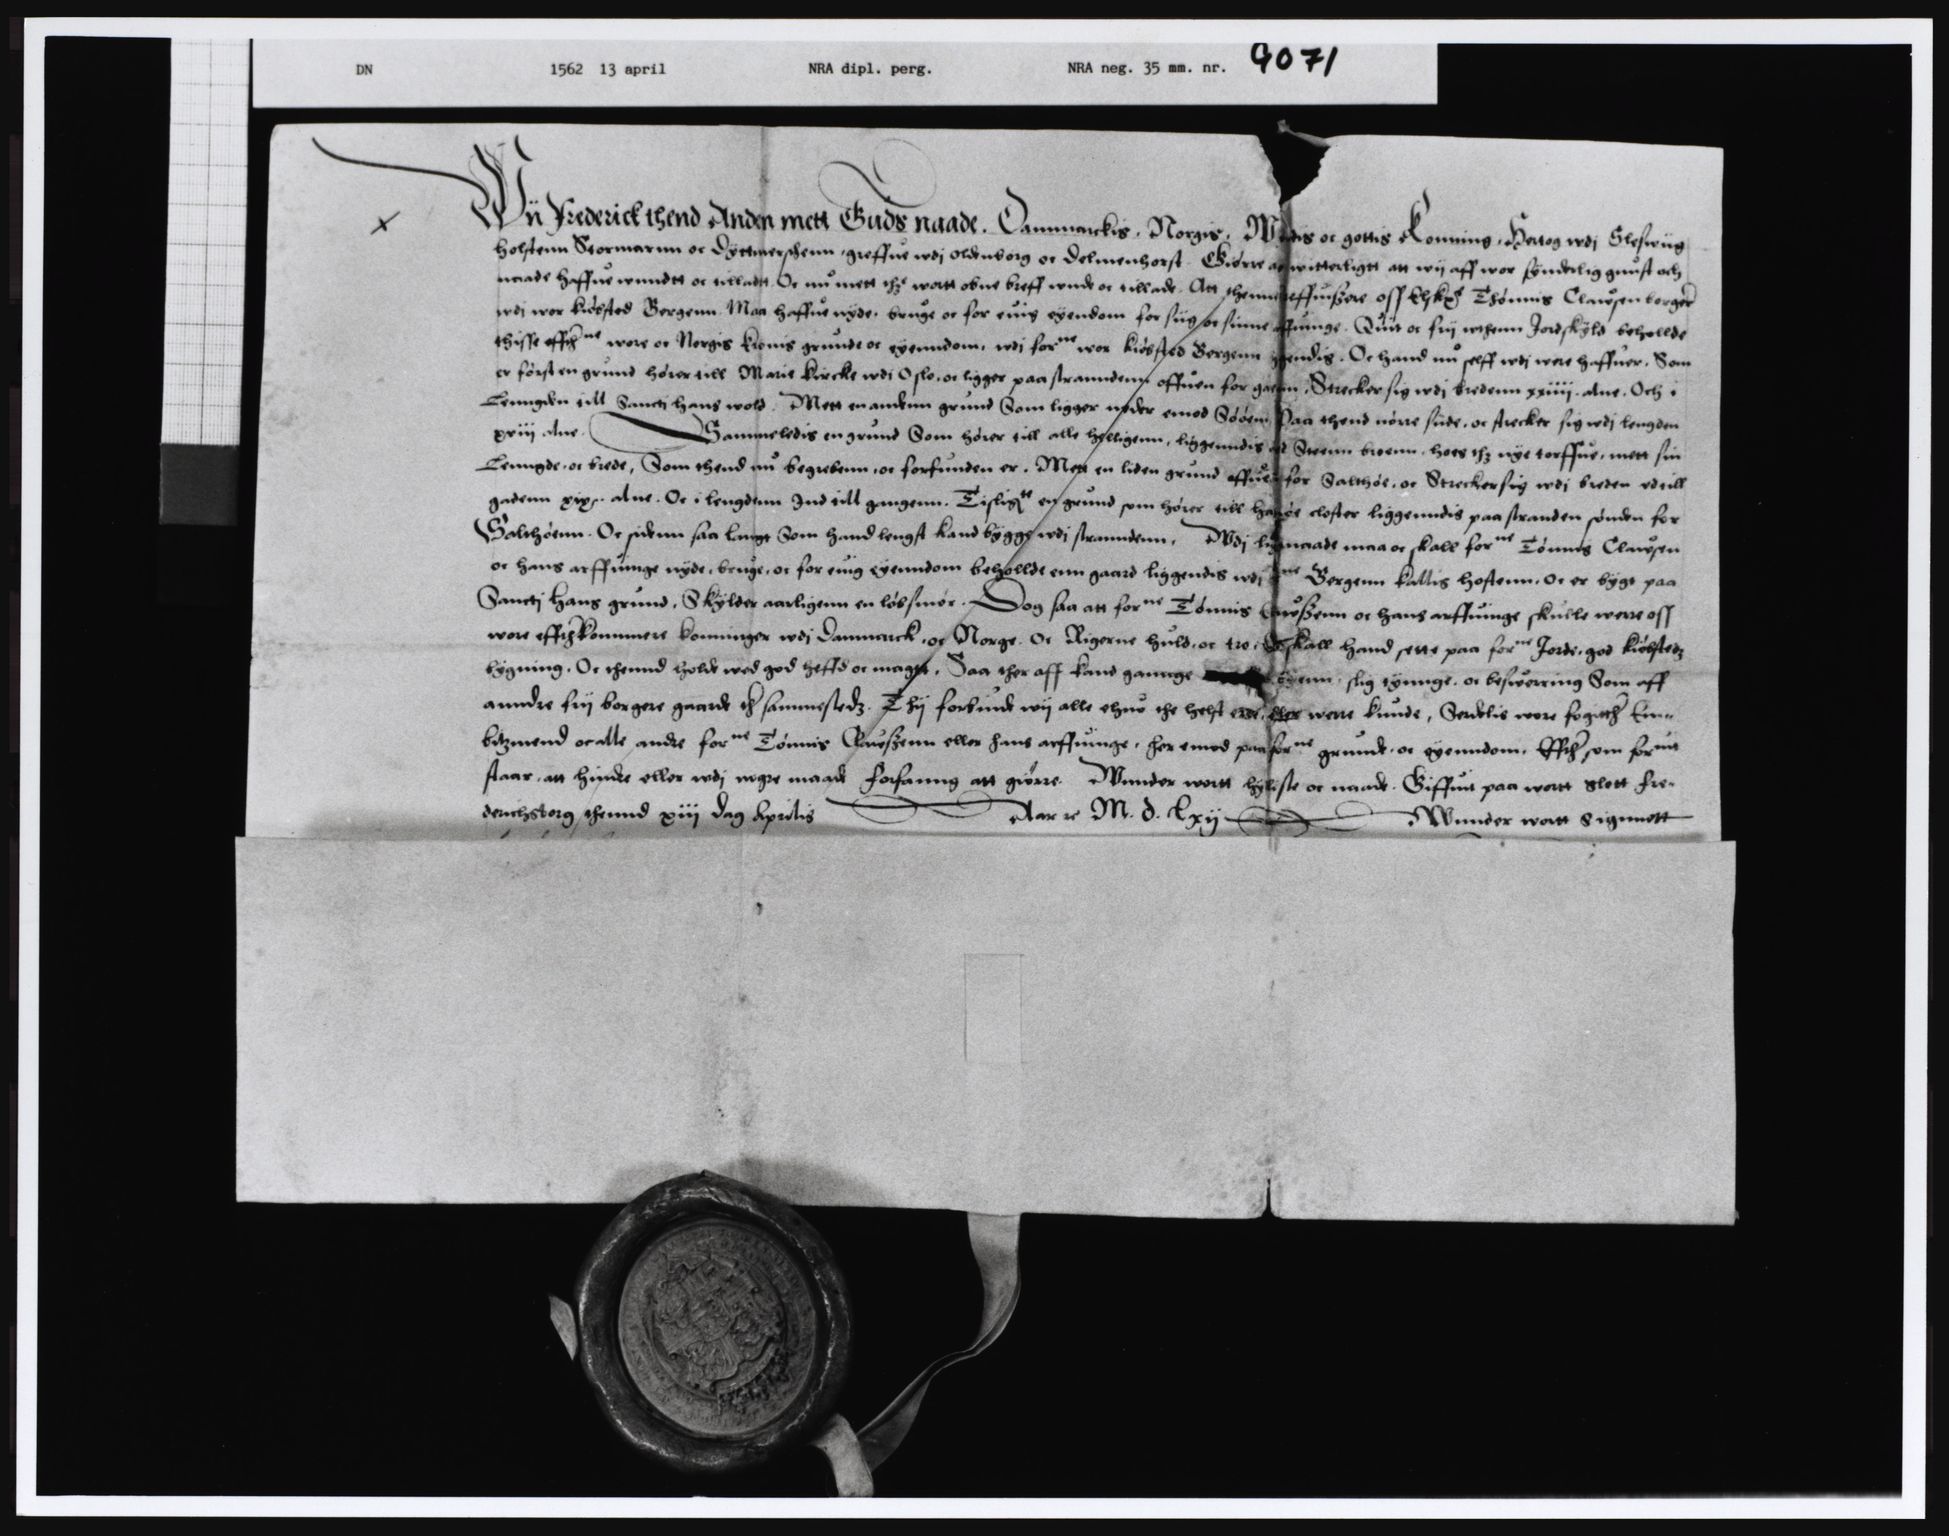 DN 1562 13 april NRA dipl. perg. NRA neg. 35 mm. nr. 9071
Wii Frederick thend Anden mett Guds naade. Danmarckis. Norgis. Wendis oc gottis Konning. Hertog wdj Slesuiig
Holstenn Stormarnn oc Dyttmerschenn. greffue wdj Oldenborg oc Delmenhorst. Giørre witterligtt att wij aff wor synderlig gunst och
naade haffue wundtt oc tilladtt. Oc nu mett thz wortt obne breff wnde oc tillade. Att oss Tønnis Clauszen borger
wdj wor kiøbsted Bergenn. Maa haffue nyde. bruge oc for euig eyendom for siig oc sinne arffuinge. Quit oc frij wthenn Jordskyld behollde
thisse wore oc Norgis kronis grunde oc eyenndom. wdj for^ne wor kiøbsted Bergenn liggendis. Oc hand nu selff wdj were haffuer. Som
er først en grund hører till Marie kircke wdj Oslo. oc ligger paa stranndenn offuen for gaden. Strecker sig wdj bredenn xxiiii. alne. Och i
Lenngden till Sancti Hans wold. Mett en andenn grund Som ligger neder emod Søøenn Paa thend nørre side. oc strecker sig wdj lengden
xviii alne. Sammeledis en grund Som hører till alle helligenn, liggenndis wed Steenn broenn. hoes thz nye torffue. mett sin
Lenngde. oc brede. Som thend nu begrebenn. oc forfunden er. Mett en liden grund offuen for Salthøe. oc Strecker sig wdj breden wd till
gadenn xix alne. Oc i lengdenn Ind till gangenn. en grund som hører till closter liggenndis paa stranden sønden for
Salthøenn. Oc sidenn saa langt Som hand lengst kand bygge wdj stranndenn. Wdj liige maade maa oc skall for^ne Tønnis Clauszen
oc hans arffuinge nyde. bruge. oc for euig eyenndom behollde enn gaard liggendis wdj for^ne Bergenn kallis Hostenn. oc er bygt paa
Sancti Hans grund. Skylder aarligenn en løb smør. Dog saa att for^ne Tønnis Clauszenn oc hans arffuinge skulle werre oss
wore konninger wdj Danmarck. oc Norge. Oc Rigerne huld. oc tro. Oc skall hand sette paa for^ne Jorde. god kiøbstedz
bygning. Oc thennd holde wed god heffd oc magtt. Saa ther aff kand gannge slig tynnge. oc beswerring Som aff
anndre frij borgere gaarde ther sammestedz. Thij forbiude wij alle ehuo the helst ere. eller werre kunde, Serdelis wore fogitther Em-
bitzmend oc alle andre for^ne Tønnis Clauszenn eller hans arffuinge. her emod paa for^ne grunde. oc eyenndom. som foruit
staar. att hindre eller wdj nogre maade forfanng att giørre. Wnnder wortt hyliste oc naade. Giffuit paa wortt slott fre-
derichsborg thennd xiii dag Aprilis Aar re M. d. Lxij Wnnder wortt Signnett